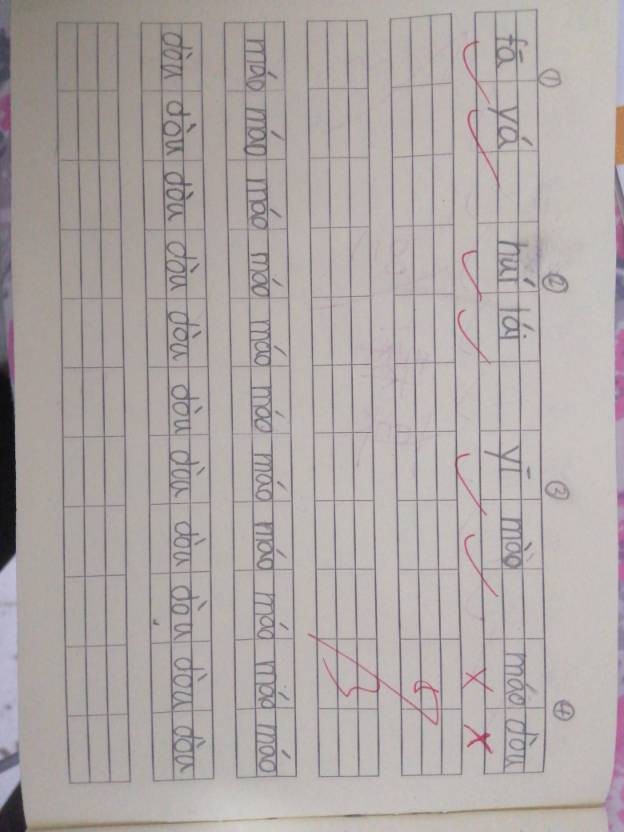 ① ② ③ ④
fā yá huí lái yī mào máo dòu
máo máo máo máo máo máo máo máo máo máo máo
dòu dòu dòu dòu dòu dòu dòu dòu dòu dòu dòu